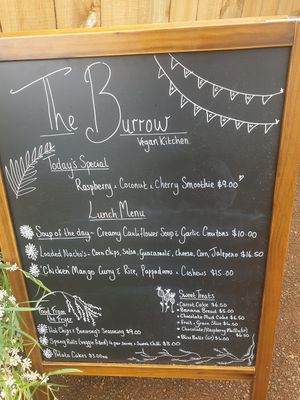 The Burrow
Vegan Kitchen
Today's Special
Raspberry, Coconut & Cherry Smoothie $9.00
Lunch Menu
Soup of the day - Creamy Cauliflower Soup & Garlic Croutons $10.00
Loaded Nacho's - Corn Chips, Salsa, Guacamole, Cheese, Corn, Jalapeno $16.50
"Chicken" Mango Curry & Rice, Pappadams & Cashews $15.00
Food From
The Fryer
Hot Chips & Seasoning $9.00
Spring Rolls (veggie filled) $3.00
Potato Cakes
Sweet Treats
Carrot Cake $6.50
Banana Bread $5.00
Chocolate Mud Cake $6.50
Fruit & Grain Slice $4.50
Chocolate/Raspberry Muffin
$6.50
Bliss Balls $4.00